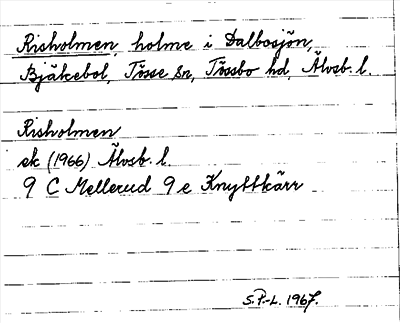 Risholmen, holme i Dalbosjön,
Bjäkebol, Tösse sn, Tössbo hd, Älvsb. l.
Risholmen
ek (1966) Älvsb. l.
9 C Mellerud 9 e Knyttkärr
S.P-L. 1967.